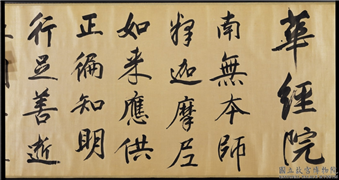 華經院
南無本師
釋迦摩尼
如来應供
正徧知明
行足善逝
國立故宮博物院